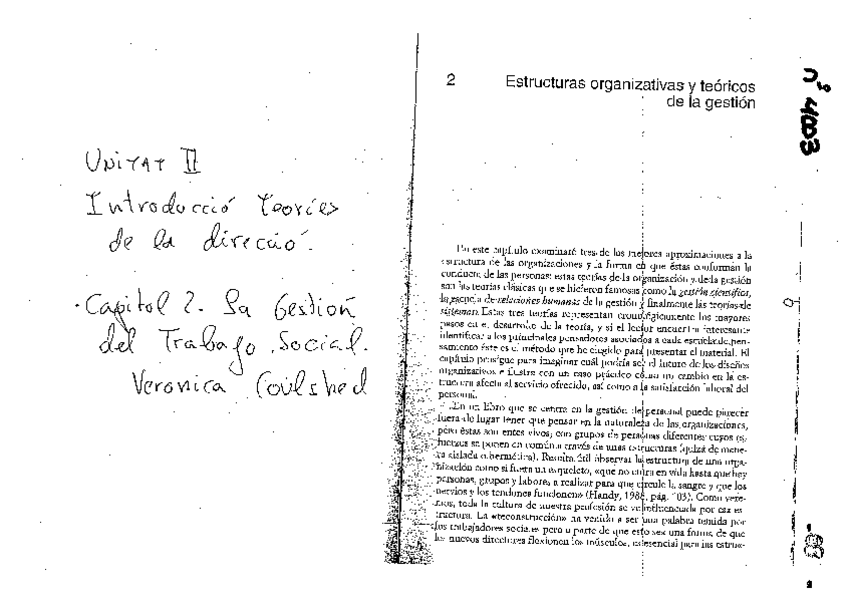 UNITAT II
Introducció Teoríes
de la direcció.
· Capítol 2. La Gestión
del Trabajo Social.
Veronica Coulshed
2 Estructuras organizativas y teóricos
de la gestión
En este capítulo examinaré tres de las mejores aproximaciones a la
estructura de las organizaciones y la forma en que éstas conforman la
conducta de las personas: estas teorías de la organización y de la gestión
son las teorías clásicas que se hicieron famosas como la gestión científica,
la escuela de relaciones humanas de la gestión y finalmente las teorías de
sistemas. Estas tres teorías representan cronológicamente los mayores
pasos en el desarrollo de la teoría, y si el lector encuentra interesante
identificar a los principales pensadores asociados a cada escuela de pen-
samiento éste es el método que he elegido para presentar el material. El
capítulo prosigue para imaginar cuál podría ser el futuro de los diseños
organizativos e ilustra con un caso práctico cómo un cambio en la es-
tructura afecta al servicio ofrecido, así como a la satisfacción laboral del
personal.
En un libro que se centra en la gestión de personal puede parecer
fuera de lugar tener que pensar en la naturaleza de las organizaciones,
pero éstas son entes vivos, con grupos de personas diferentes cuyos es-
fuerzos se ponen en común a través de unas estructuras (quizá de mane-
ra aislada o hermética). Resulta útil observar la estructura de una orga-
nización como si fuera un esqueleto, «que no entra en vida hasta que hay
personas, grupos y labores a realizar para que circule la sangre y que los
nervios y los tendones funcionen» (Handy, pág. Como vere-
mos, toda la cultura de nuestra profesión se ve influenciada por esa es-
tructura. La «reconstrucción» ha venido a ser una palabra temida por
los trabajadores sociales pero a parte de que esto sea una forma de que
los nuevos directores flexionen los músculos, es esencial para las estruc-
nº 4003